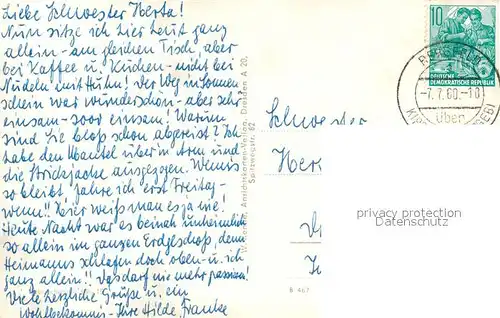 Liebe Schwester Herta!
Nun sitze ich hier heut ganz
allein - am gleichen Tisch, aber
bei Kaffee u. Kuchen - nicht bei
Nudeln mit Huhn! Der Weg im Sonnen-
schein war wunderschön - aber sehr
einsam - soor einsam! Warum
sind Sie bloß schon abgereist? Ich
habe den Mantel über'n Arm und
die Strickjacke ausgezogen. Wenn's
so bleibt, fahre ich erst Freitag -
wenn!! Hier weiß man es ja nie!
Heute Nacht war es beinah unheimlich
so allein im ganzen Erdgeschoß, denn
Heimanns schlafen doch oben - u. ich
ganz allein!! Das darf nie mehr passieren!
Viele herzliche Grüße u. ein
Wohlbekomm's - Ihre Hilde Franke
Ansichtskarten-Verlag, Dresden A 20,
Schwester
Her
B 467
10
DEUTSCHE
DEMOKRATISCHE REPUBLIK
-7.7.60.-10
über
privacy protection
Datenschutz